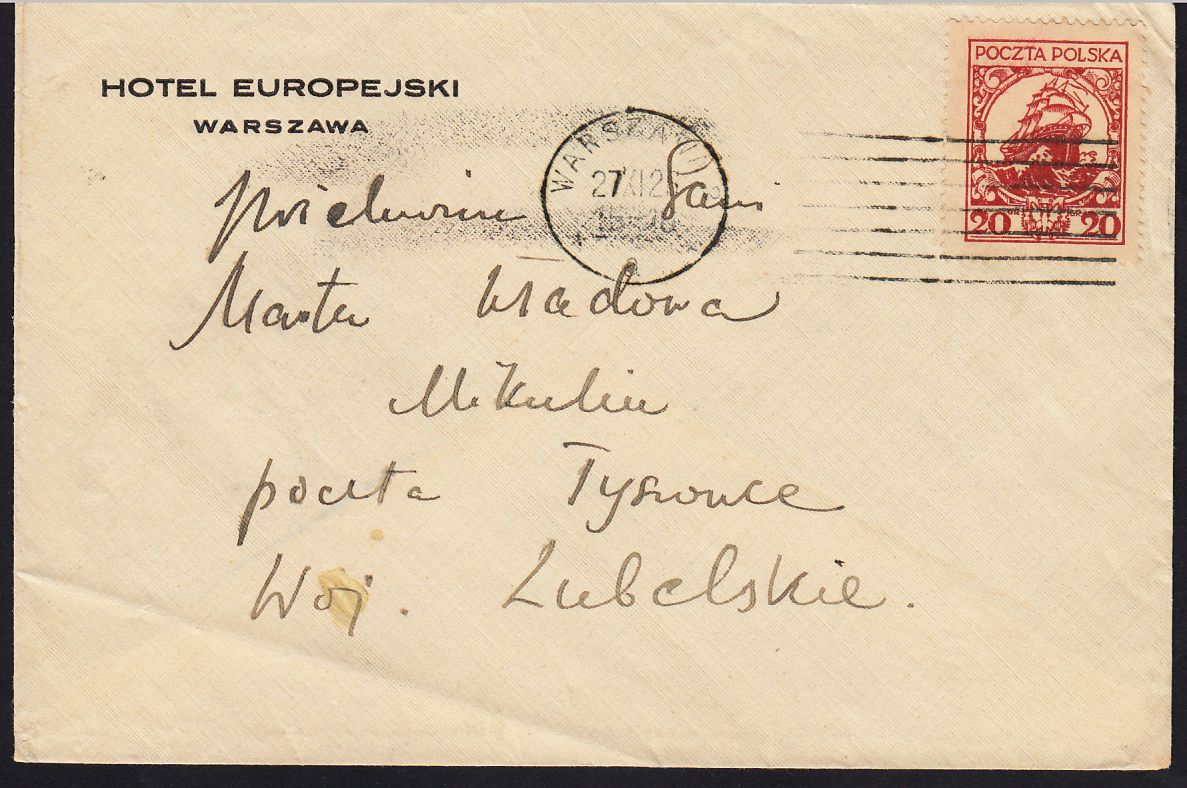 HOTEL EUROPEJSKI
WARSZAWA
POCZTA POLSKA
20 20
WARSZAWA (1)
27 XI 2
Pani
Marta
Mikulin
poczta Tyszowce
Woj. Lubelskie.